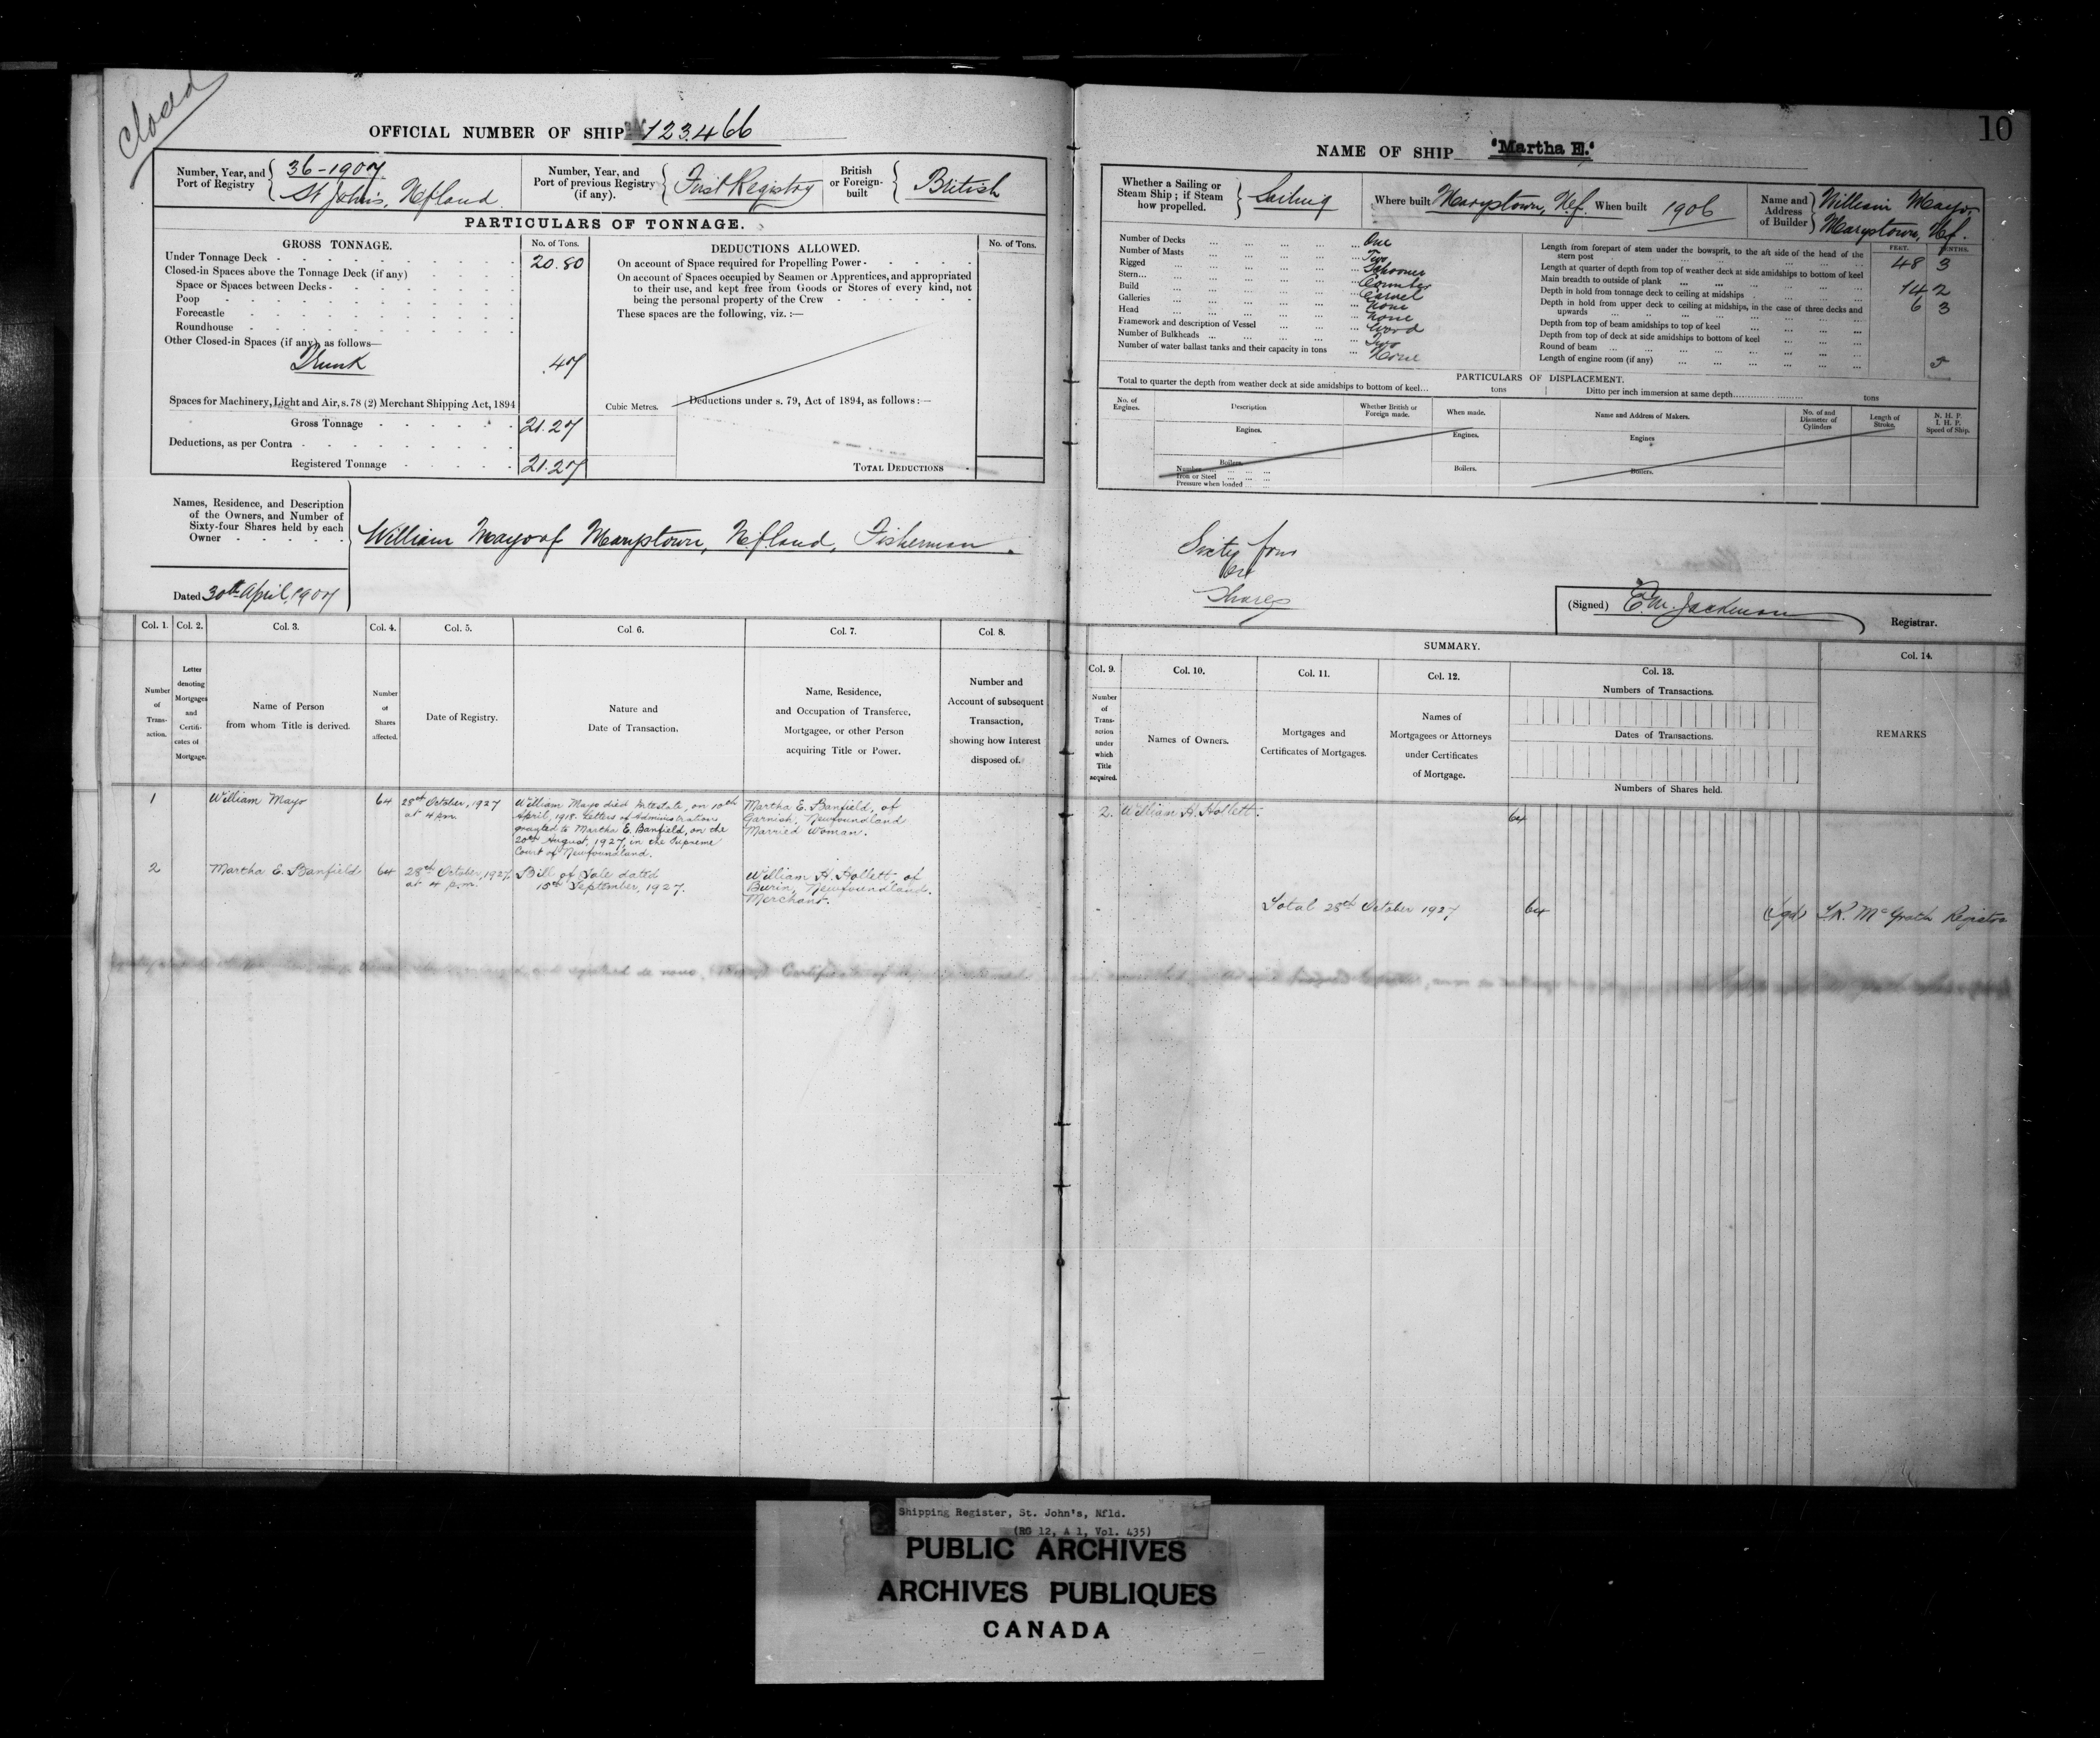 Closed
OFFICIAL NUMBER OF SHIP 123.466
Number, Year, and Port of Registry
36-1907.
St Johns, Nfland.
Number, Year, and Port of previous Registry (if any).
First Registry
British or Foreign-built
British
PARTICULARS OF TONNAGE.
GROSS TONNAGE.
No. of Tons.
Under Tonnage Deck - 20.80
Closed-in Spaces above the Tonnage Deck (if any)
Space or Spaces between Decks -
Poop
Forecastle
Roundhouse
Other Closed-in Spaces (if any) as follows—
Trunk .47
Spaces for Machinery, Light and Air, s. 78 (2) Merchant Shipping Act, 1894
Gross Tonnage 21.27
Deductions, as per Contra
Registered Tonnage 21.27
Cubic Metres.
DEDUCTIONS ALLOWED.
No. of Tons.
On account of Space required for Propelling Power
On account of Spaces occupied by Seamen or Apprentices, and appropriated
to their use, and kept free from Goods or Stores of every kind, not
being the personal property of the Crew
These spaces are the following, viz. :—
Deductions under s. 79, Act of 1894, as follows :—
TOTAL DEDUCTIONS
Names, Residence, and Description
of the Owners, and Number of
Sixty-four Shares held by each
Owner
William Mayo of Marystown, Nfland, Fisherman.
Dated 30th April, 1907
Col. 1. Col. 2. Col. 3. Col. 4. Col. 5. Col. 6. Col. 7. Col. 8.
Number of Trans-action.
Letter denoting Mortgages and Certifi-cates of Mortgage.
Name of Person from whom Title is derived.
Number of Shares affected.
Date of Registry.
Nature and Date of Transaction.
Name, Residence, and Occupation of Transferee, Mortgagee, or other Person acquiring Title or Power.
Number and Account of subsequent Transaction, showing how Interest disposed of.
1
William Mayo
64
28th October, 1927
at 4 p.m.
William Mayo died intestate, on 10th
April, 1918. Letters of Administration
granted to Martha E. Banfield, on the
20th August, 1927, in the Supreme
Court of Newfoundland.
Martha E. Banfield, of
Garnish, Newfoundland
Married Woman.
2
Martha E. Banfield
64
28th October, 1927
at 4 p.m.
Bill of Sale dated
15th September, 1927.
William H. Hollett, of
Burin, Newfoundland.
Merchant.
10
NAME OF SHIP "Martha E."
Whether a Sailing or
Steam Ship; if Steam
how propelled.
Sailing
Where built Marystown, Nf. When built 1906
Name and Address of Builder
William Mayo,
Marystown, Nf.
Number of Decks One
Number of Masts Two
Rigged Schooner
Stern Counter
Build Carvel
Galleries None
Head None
Framework and description of Vessel Wood
Number of Bulkheads Two
Number of water ballast tanks and their capacity in tons None
FEET. TENTHS.
Length from forepart of stem under the bowsprit, to the aft side of the head of the
stern post 48 3
Length at quarter of depth from top of weather deck at side amidships to bottom of keel
Main breadth to outside of plank 14 2
Depth in hold from tonnage deck to ceiling at midships 6 3
Depth in hold from upper deck to ceiling at midships, in the case of three decks and
upwards
Depth from top of beam amidships to top of keel
Depth from top of deck at side amidships to bottom of keel
Round of beam
Length of engine room (if any)
PARTICULARS OF DISPLACEMENT.
Total to quarter the depth from weather deck at side amidships to bottom of keel... tons
Ditto per inch immersion at same depth tons
No. of Engines.
Description
Whether British or Foreign made.
When made.
Name and Address of Makers.
No. of and Diameter of Cylinders
Length of Stroke.
N. H. P.
I. H. P.
Speed of Ship.
Engines. Engines. Engines
Boilers. Boilers. Boilers.
Number
Iron or Steel
Pressure when loaded
Sixty four
Shares
(Signed) E.M. Jackman
Registrar.
SUMMARY.
Col. 9. Col. 10. Col. 11. Col. 12. Col. 13. Col. 14.
Number of Trans-action under which Title acquired.
Names of Owners.
Mortgages and Certificates of Mortgages.
Names of Mortgagees or Attorneys under Certificates of Mortgage.
Numbers of Transactions.
Dates of Transactions.
Numbers of Shares held.
REMARKS
2. William H. Hollett. 64
Total 28th October 1927 64 (sgd) McGrath Registrar
Shipping Register, St. John's, Nfld.
(RG 12, A 1, Vol. 435)
PUBLIC ARCHIVES
ARCHIVES PUBLIQUES
CANADA